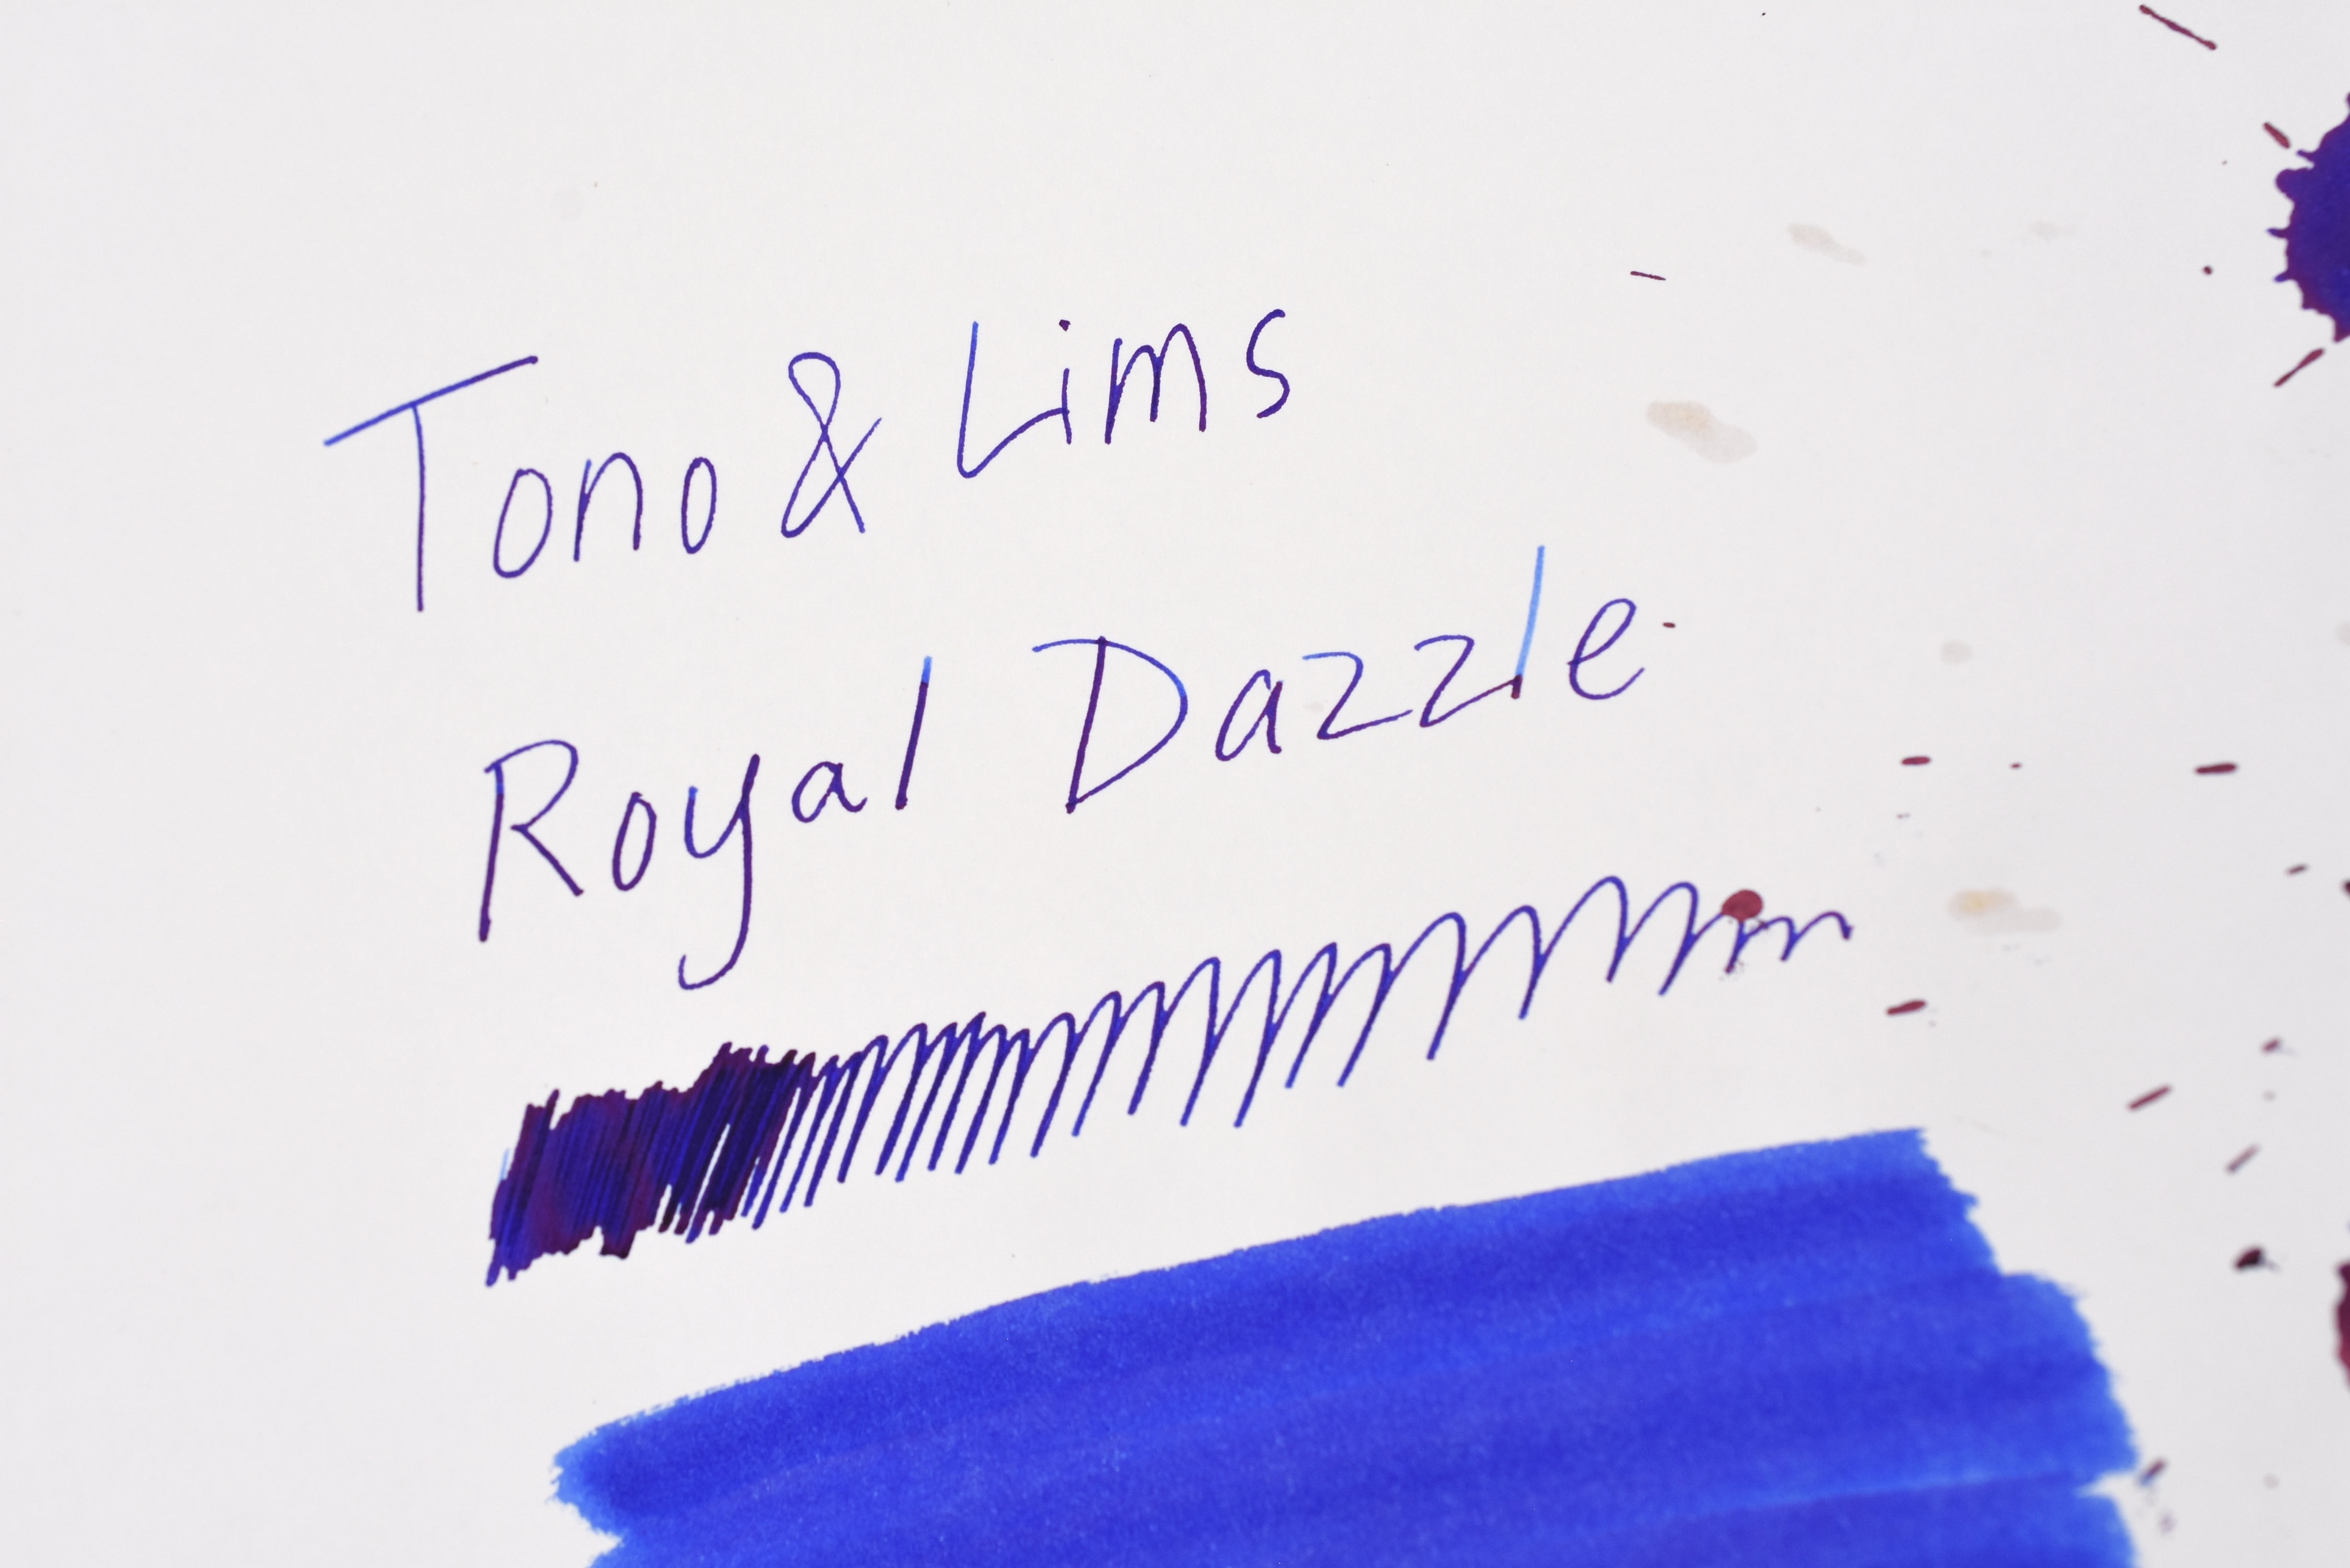 Tono & Lims
Royal Dazzle